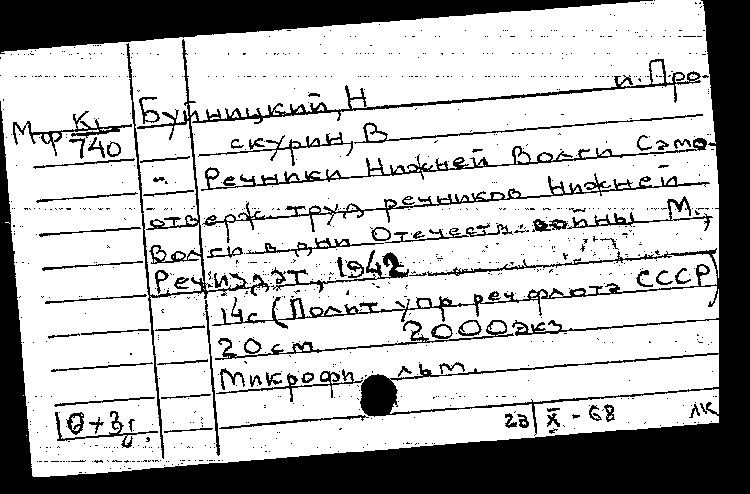 Буйницкий, Н и. Про-
Мф К1/740
скурин, В
Речники Нижней Волги. Само-
отверж. труд речников Нижней
Волги в дни Отечеств. войны М.,
Речиздат, 1942
14с (Полит. упр. реч флота СССР)
20 см. 2000 экз
Микрофильм.
23/X - 68 ЛК